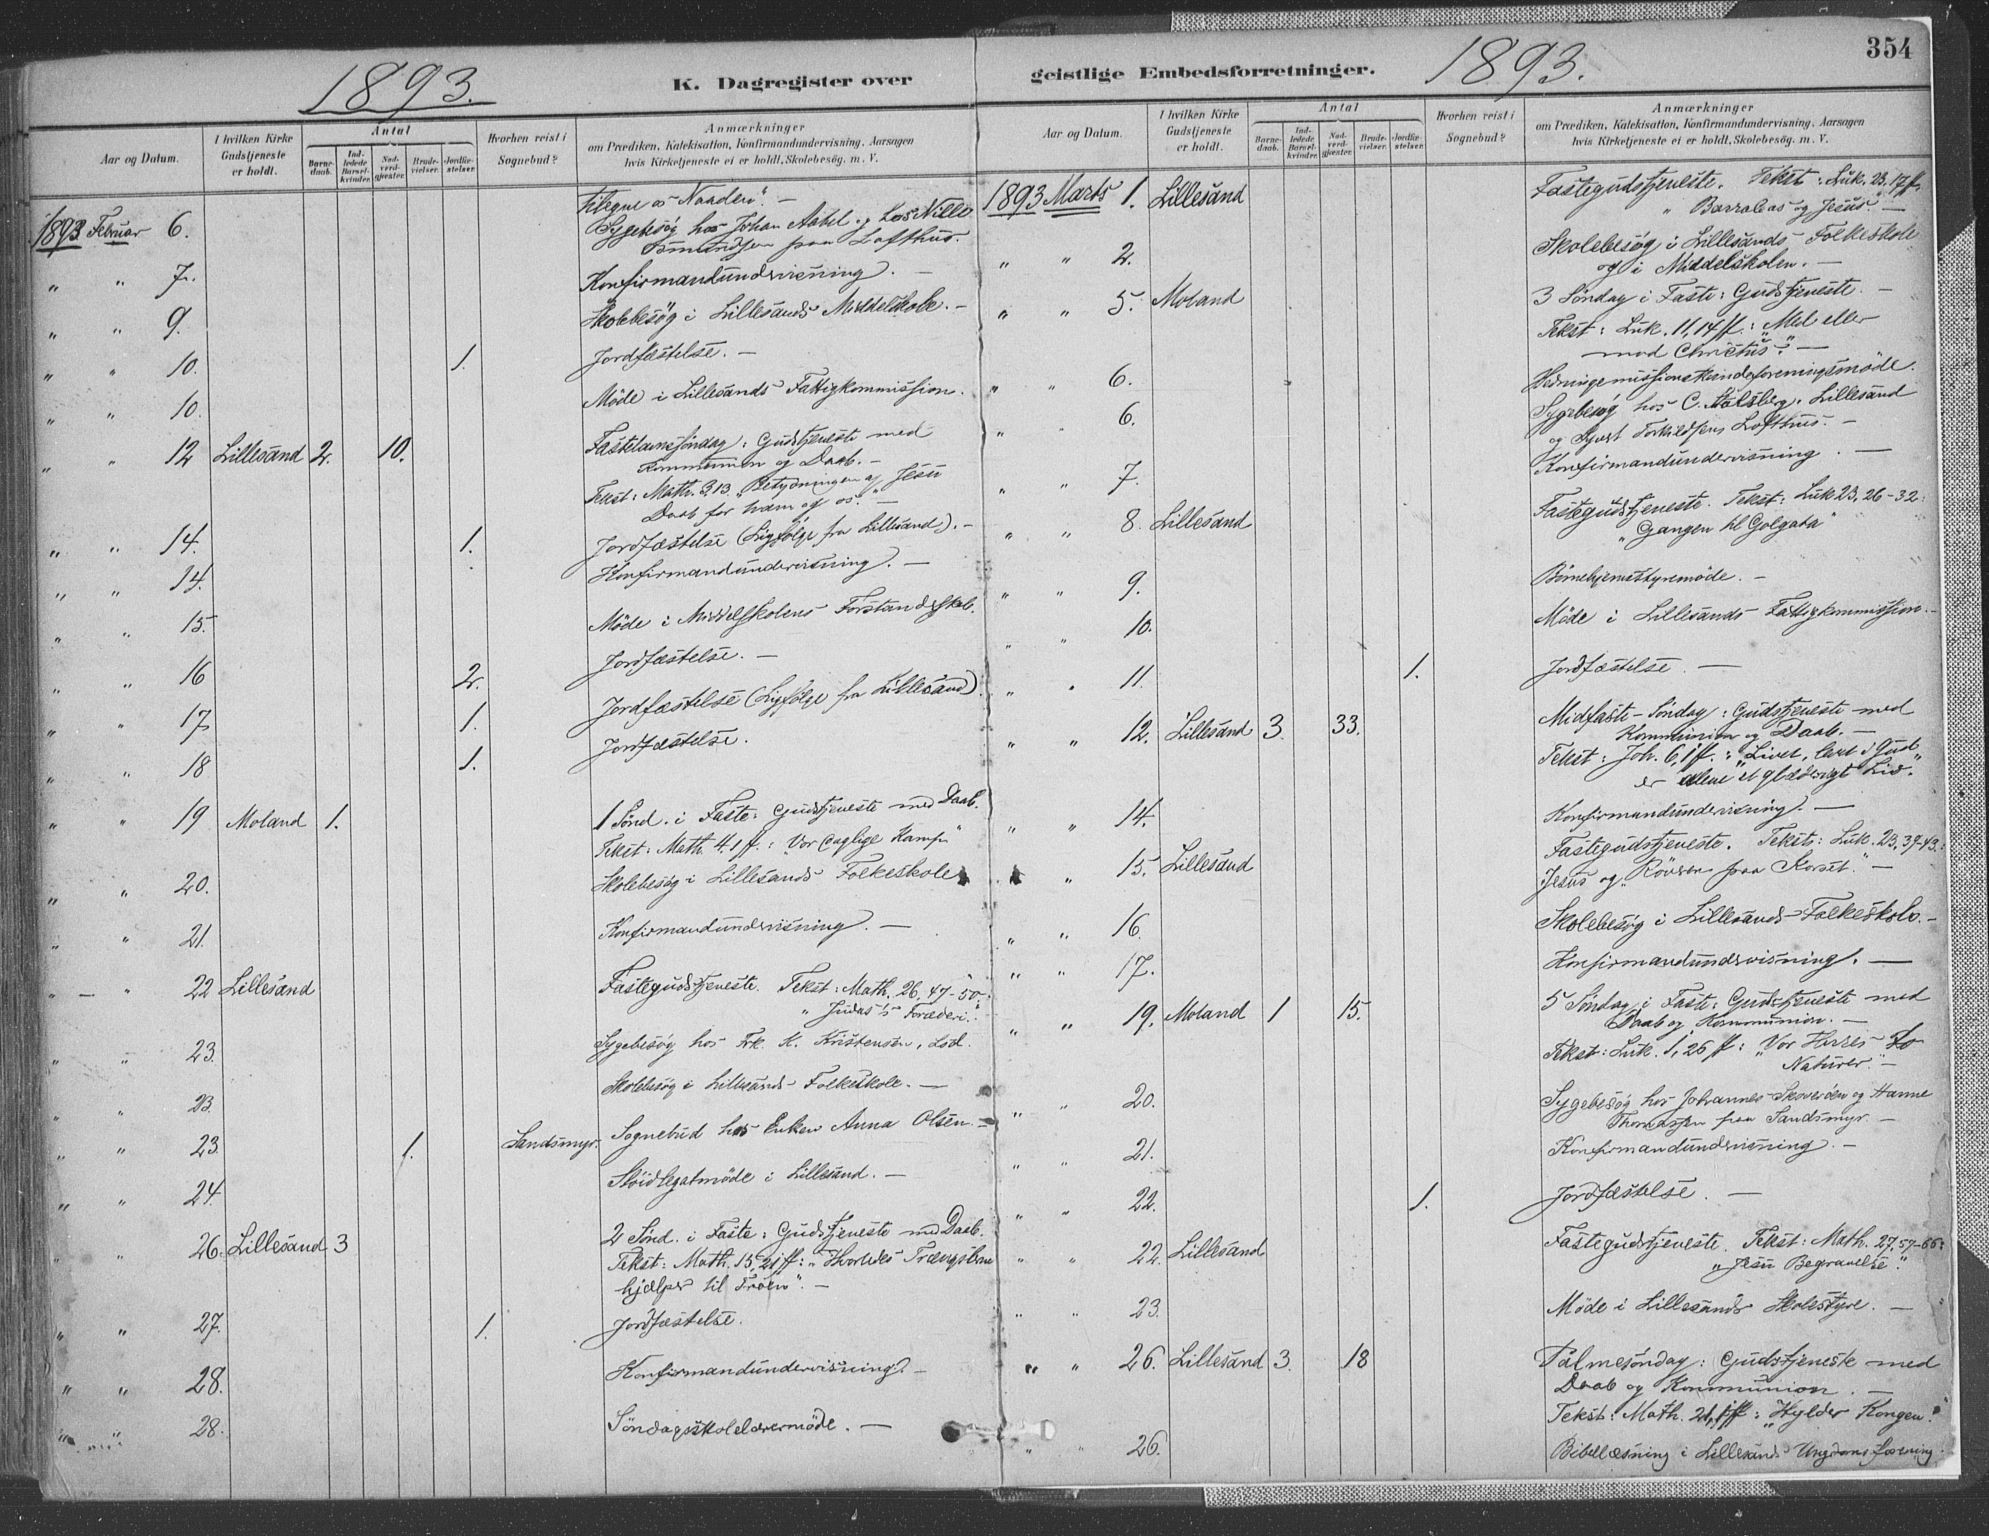 1893.
K. Dagregister over
Aar og Datum.
I hvilken Kirke Gudstjeneste er holdt.
Antal
Barnedaab.
Indledede Barselkvinder.
Nadverdgjester.
Brudevielser.
Jordfæstelser.
Hvorhen reist i Sognebud?
Anmærkninger
om Prædiken, Katekisation, Konfirmandundervisning, Aarsagen
hvis Kirketjeneste ei er holdt, Skolebesøg. m. V.
Naaden". —
1893 Februar 6. Sygebesøg hos Johan Aabel og hos Nille
paa Lofthus.
" " 7. Konfirmandundervisning. —
" " 9. Skolebesøg i Lillesands Middelskole. —
" " 10. 1. Jordfæstelse. —
" " 10. Møde i Lillesands Fattigkommission.
" " 12 Lillesand 2. 10. Fastelavnssøndag: Gudstjeneste med
Kommunion og Daab. —
Tekst: Math. 3,13 "Betydningen af Jesu
Daab for ham og os". —
" " 14. 1. Jordfæstelse (Ligfølge fra Lillesand). —
" " 14. Konfirmandundervisning. —
" " 15. Møde i Middelskolens Forstanderskab.
" " 16 2. Jordfæstelse. —
" " 17 1. Jordfæstelse (Ligfølge fra Lillesand).
" " 18 1. Jordfæstelse.
" " 19 Moland 1. 1 Sønd. i Faste: Gudstjeneste med Daab.
Tekst: Math. 4,1 ff.: "Vor daglige Kamp"
" " 20. Skolebesøg i Lillesands Folkeskole
" " 21. Konfirmandundervisning. —
" — " 22 Lillesand Fastegudstjeneste. Tekst: Math. 26,47-50:
"Judas's Forræderi".
" " 23. Sygebesøg hos Frk. K. Kristensen, Lsd.
" " 23. Skolebesøg i Lillesands Folkeskole. —
" " 23. 1. Sandsmyr. Sognebud hos Enken Anna Olsen. —
" " 24. Sløidlegatmøde i Lillesand. —
" " 26. Lillesand 3 2 Sønd. i Faste: Gudstjeneste med Daab.
Tekst: Math. 15,21 ff: "Hvorledes Trængslerne
hjælper til Troen". —
" " 27. 1. Jordfæstelse.
" " 28. Konfirmandundervisning. —
" " 28. Søndagsskolelærermøde. —
geistlige Embedsforretninger.
1893.
354
Aar og Datum.
I hvilken Kirke Gudstjeneste er holdt.
Antal
Barnedaab.
Indledede Barselkvinder.
Nadverdgjester.
Brudevielser.
Jordfæstelser.
Hvorhen reist i Sognebud?
Anmærkninger
om Prædiken, Katekisation, Konfirmandundervisning, Aarsagen
hvis Kirketjeneste ei er holdt, Skolebesøg. m. V.
1893 Marts 1. Lillesand Fastegudstjeneste. Tekst: Luk. 23,17 ff.
"Barrabas og Jesus". —
" " 2. Skolebesøg i Lillesands Folkeskole
og i Middelskolen. —
" " 5. Moland 3 Søndag i Faste: Gudstjeneste. —
Tekst: Luk. 11,14 ff.: "Med eller
mod Christus". —
" " 6. Hedningemissionskvindeforeningsmøde.
" " 6. Sygebesøg hos C. Aalsberg, Lillesand
og Torkildsens Lofthus. —
" " 7. Konfirmandundervisning. —
" " 8. Lillesand Fastegudstjeneste. Tekst: Luk 23,26-32:
"Gangen til Golgata"
" " 9. Børnehjemsstyremøde. —
" " 10. Møde i Lillesands Fattigkommission. —
" " 11. 1. Jordfæstelse. —
" " 12. Lillesand 3. 33. Midfaste-Søndag: Gudstjeneste med
Kommunion og Daab. —
Tekst: Joh. 6,1 ff.: "Livet, levet i Gud"
er alene et glædeligt Liv.
" " 14. Konfirmandundervisning. —
" " 15. Lillesand Fastegudstjeneste. Tekst: Luk. 23,39-43:
Jesus og "Røveren paa Korset". —
" " 16. Skolebesøg i Lillesands Folkeskole. —
" " 17. Konfirmandundervisning. —
" " 19. Moland 1 15. 5 Søndag i Faste: Gudstjeneste med
Daab og Kommunion. —
Tekst: Luk. 1,26 ff: "Vor Herres to
Naturer". —
" " 20. Sygebesøg hos Johannes Skoverøen og Hanne
Thomassen paa Sandsmyr. —
" " 21. Konfirmandundervisning. —
" " 22. 1. Jordfæstelse. —
" " 22. Lillesand Fastegudstjeneste. Tekst: Math. 27,57-66:
"Jesu Begravelse".
" " 23. Møde i Lillesands Skolestyre. —
" " 26. Lillesand 3. 18 Palmesøndag: Gudstjeneste med
Daab og Kommunion. —
Tekst: Math. 21,1 ff: "Hylder Kongen".
" " 26. Bibellæsning i Lillesands Ungdomsforening.